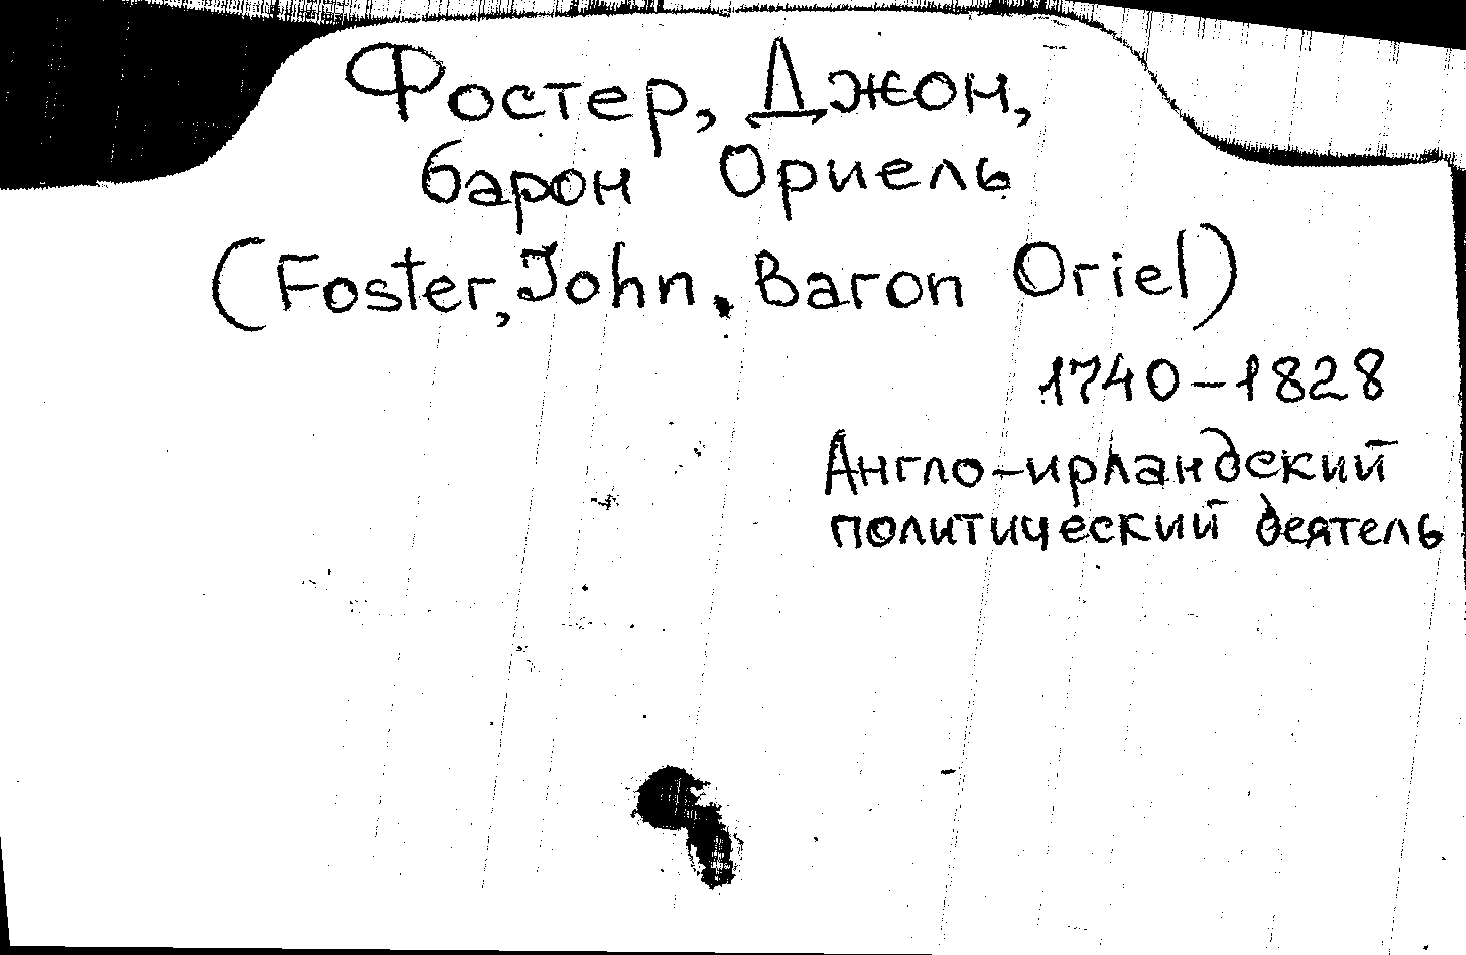 Фостер, Джон,
барон Ориель
(Foster, John, Baron Oriel)
1740-1828
Англо-ирландский
политический деятель